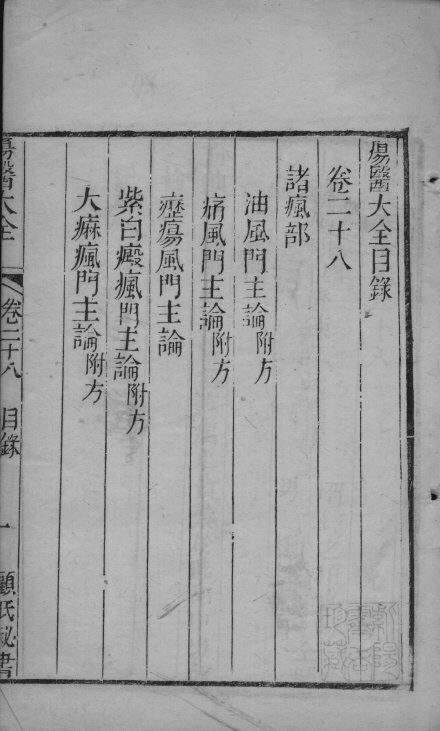 瘍醫大全目錄
卷二十八
諸瘋部
油風門主論附方
痛風門主論附方
瘂瘍風門主論
紫白癜瘋門主論附方
大痲瘋門主論附方
瘍醫大全
卷二十八
目錄
一
顧氏秘書